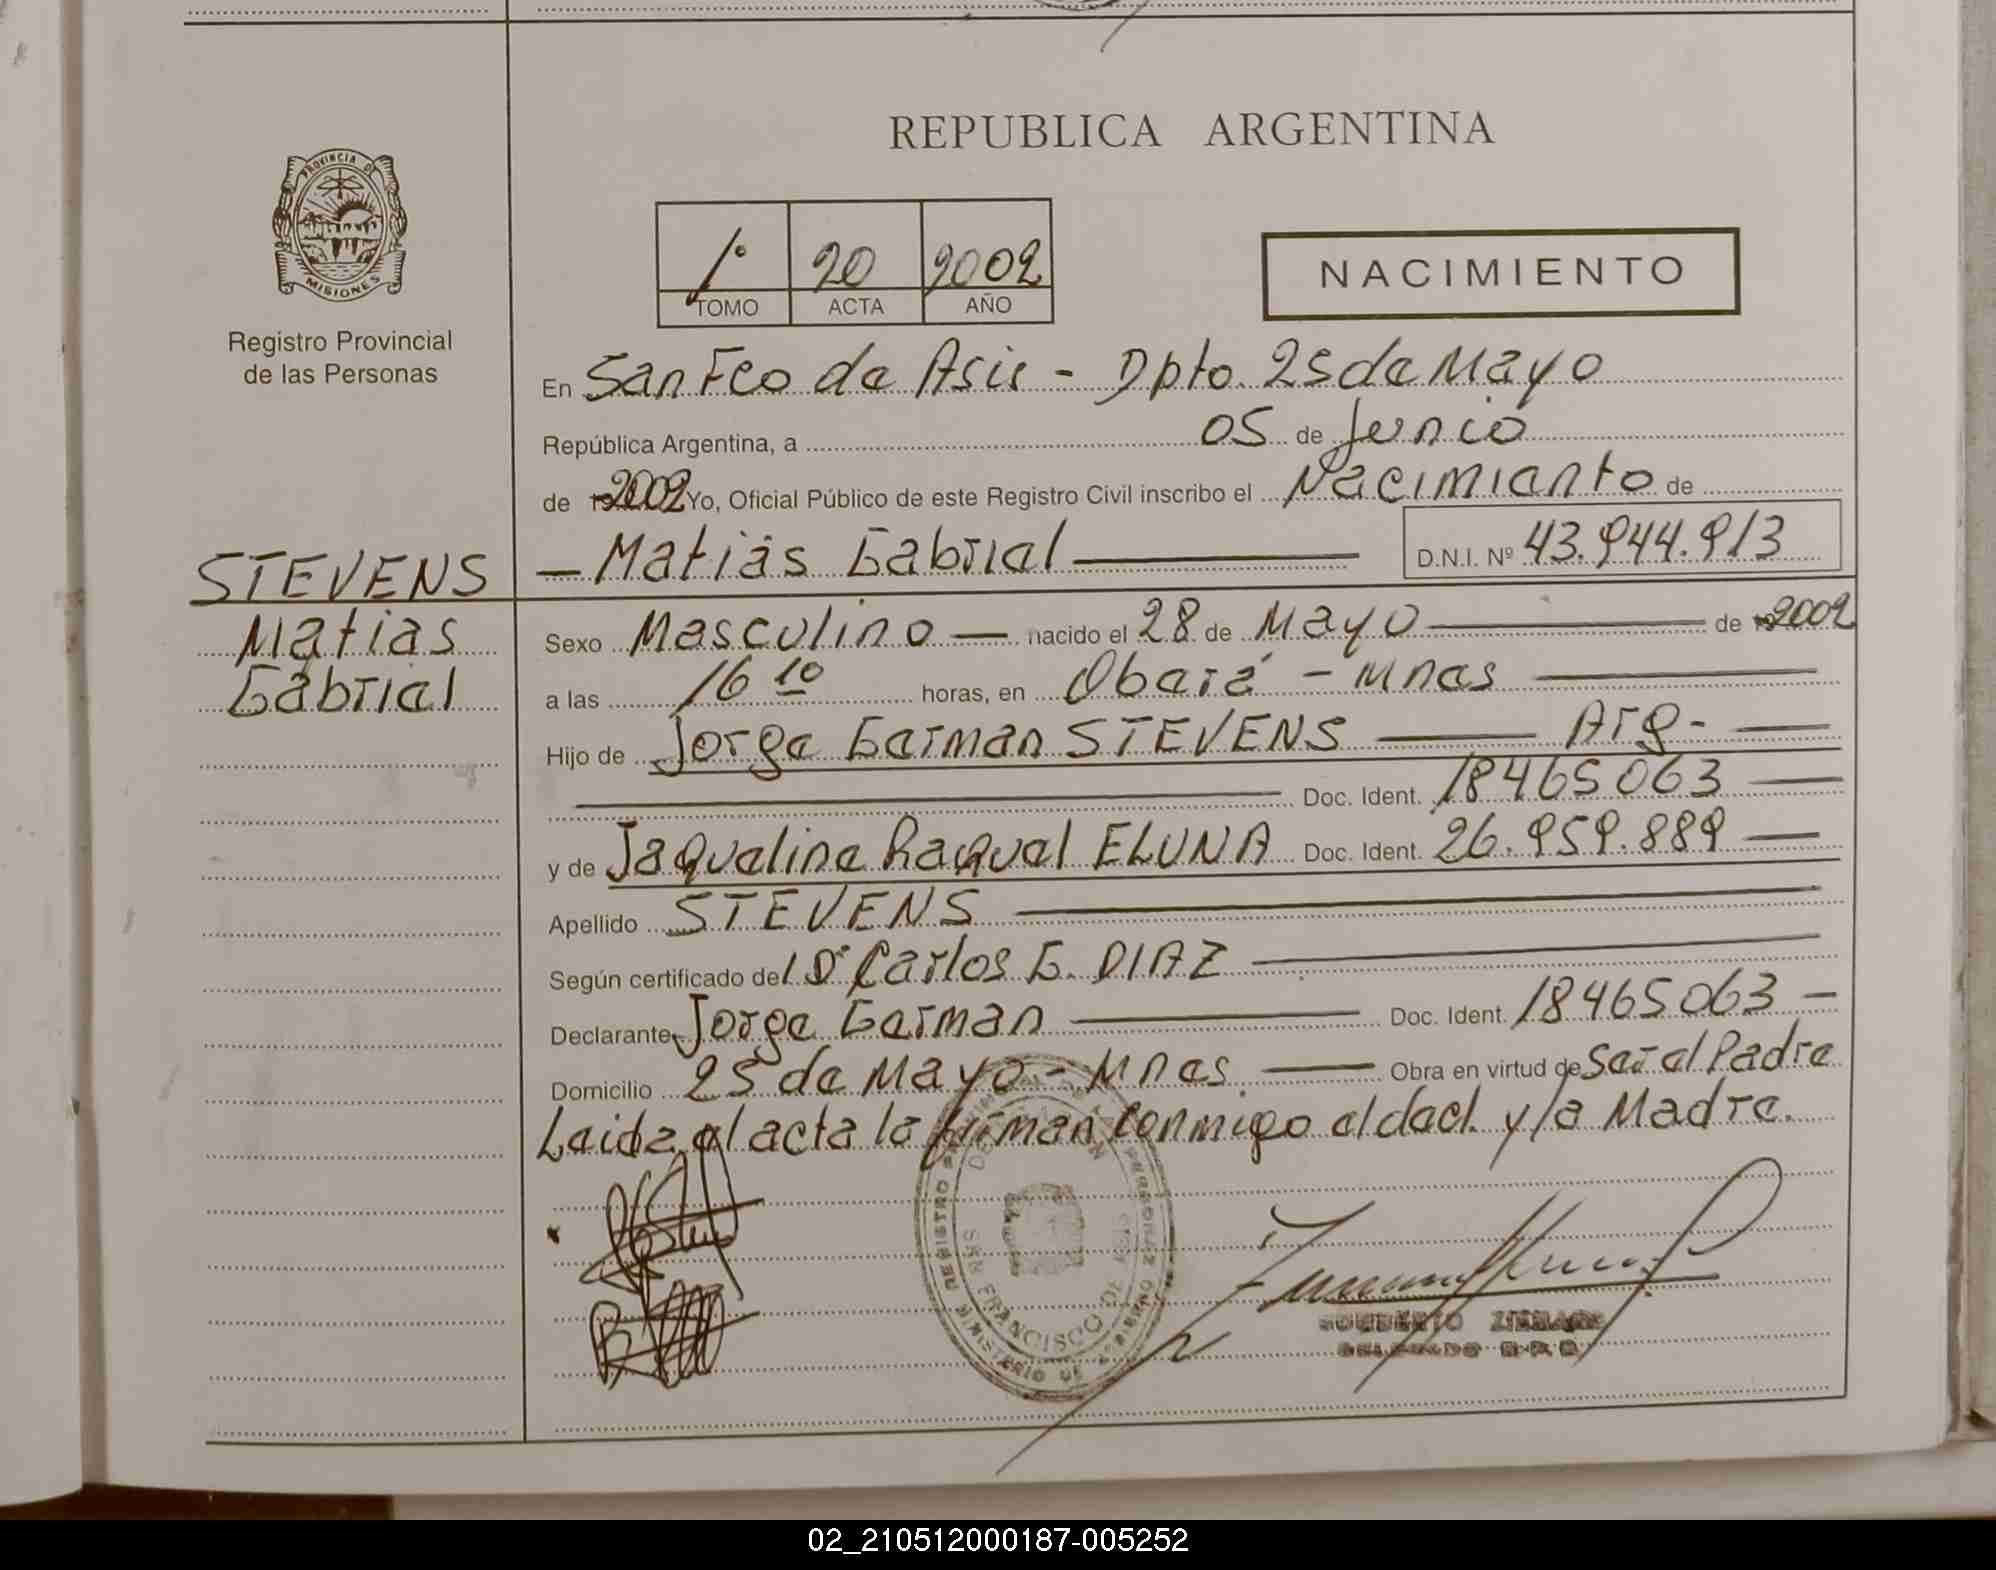 REPUBLICA ARGENTINA
PROVINCIA DE
MISIONES
Registro Provincial
de las Personas
1º 20 2002
TOMO ACTA AÑO
NACIMIENTO
En San Fco de Asis - Dpto. 25 de Mayo
República Argentina, a 05 de Junio
de 2002 Yo, Oficial Público de este Registro Civil inscribo el Nacimiento de
Matias Gabriel D.N.I. Nº 43.944.913
STEVENS
Matias
Gabriel
Sexo Masculino nacido el 28 de Mayo de 2002
a las 16 10 horas, en Oberá - Mnes
Hijo de Jorge German STEVENS Arg-
Doc. Ident. 18465063
y de Jaqueline Raquel ELUNA Doc. Ident. 26.959.889
Apellido STEVENS
Según certificado del Dr Carlos G. DIAZ
Declarante Jorge German Doc. Ident. 18465063
Domicilio 25 de Mayo - Mnes Obra en virtud de Ser el Padre
Leida el acta la firman conmigo el decl. y la Madre.
SAN FRANCISCO DE
MINISTERIO DE
02_210512000187-005252